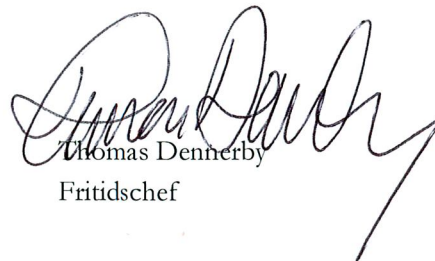 Thomas Dennerby
Fritidschef